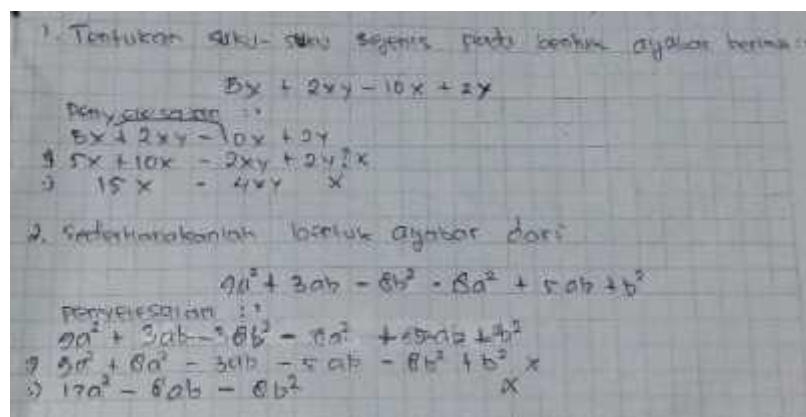 1. Tentukan suku-suku sejenis pada bentuk aljabar berikut :
5x + 2xy - 10x + 2y
Penyelesaian :
5x + 2xy - 10x + 2y
5x + 10x - 2xy + 2y x
15x - 4xy x
2. Sederhanakanlah bentuk aljabar dari
9a² + 3ab - 8b² - 8a² + 5ab + b²
Penyelesaian :
9a² + 3ab - 8b² - 8a² + 5ab + b²
9a² + 8a² - 3ab - 5ab - 8b² + b² x
17a² - 8ab - 8b² x